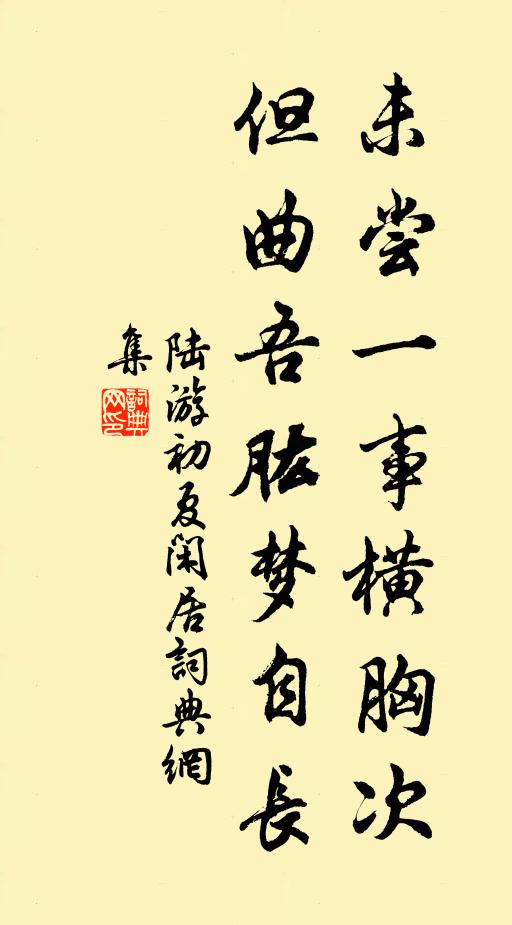 未尝一事横胸次
但曲吾肱梦自長
陆游初夏闲居詞典網
集
詞典网印